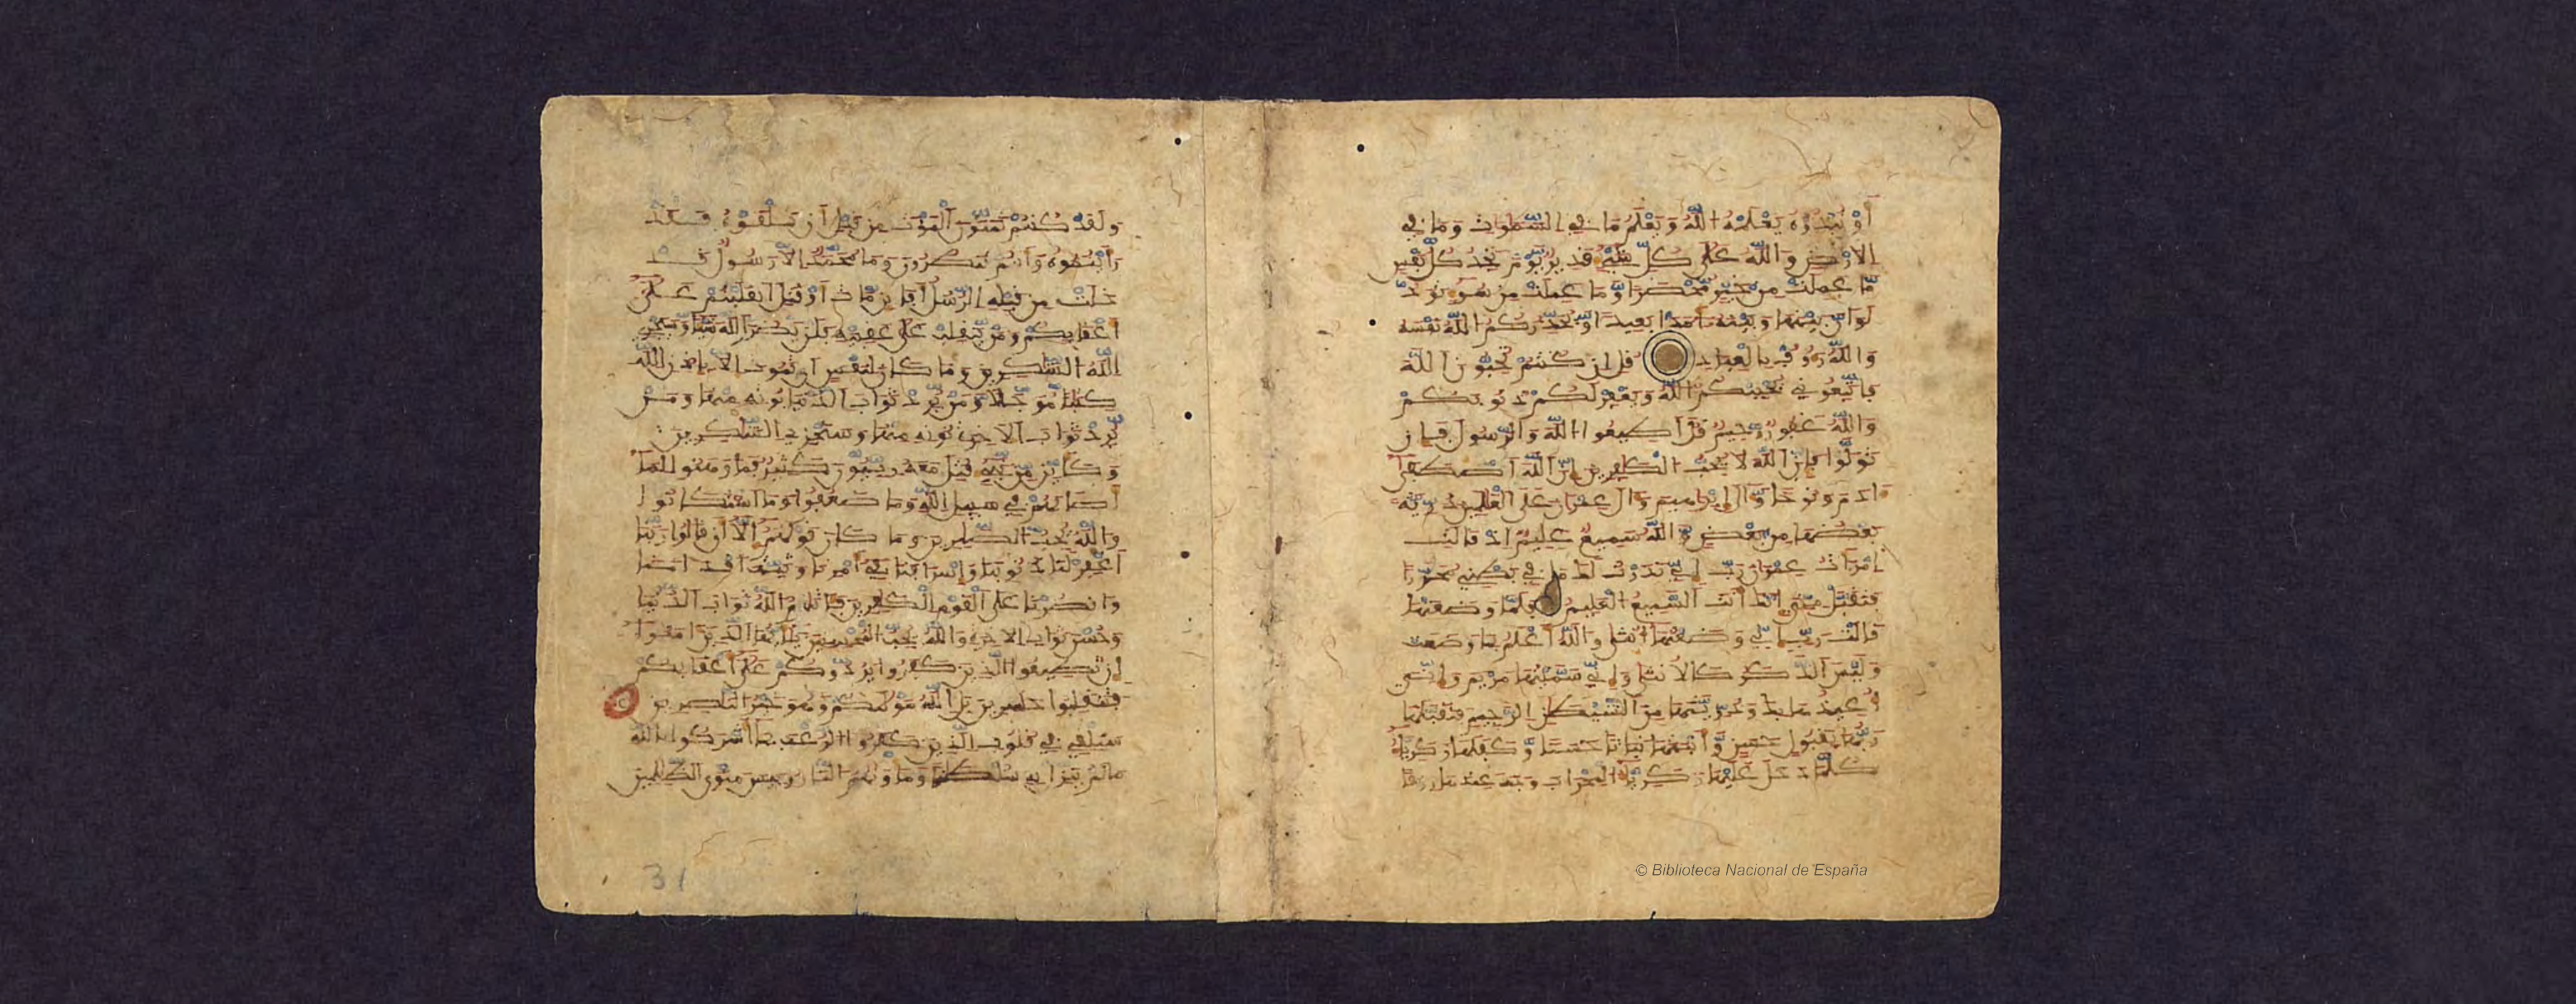 أَوْ تُبْدُوهُ يَعْلَمْهُ اللَّهُ وَيَعْلَمُ مَا فِي السَّمَوَاتِ وَمَا فِي
الأَرْضِ وَاللَّهُ عَلَى كُلِّ شَيْءٍ قَدِيرٌ يَوْمَ تَجِدُ كُلُّ نَفْسٍ
مَّا عَمِلَتْ مِنْ خَيْرٍ مُّحْضَرًا وَمَا عَمِلَتْ مِن سُوءٍ تَوَدُّ
لَوْ أَنَّ بَيْنَهَا وَبَيْنَهُ أَمَدًا بَعِيدًا وَيُحَذِّرُكُمُ اللَّهُ نَفْسَهُ
وَاللَّهُ رَءُوفٌ بِالْعِبَادِ قُلْ إِن كُنتُمْ تُحِبُّونَ اللَّهَ
فَاتَّبِعُونِي يُحْبِبْكُمُ اللَّهُ وَيَغْفِرْ لَكُمْ ذُنُوبَكُمْ
وَاللَّهُ غَفُورٌ رَّحِيمٌ قُلْ أَطِيعُوا اللَّهَ وَالرَّسُولَ فَإِن
تَوَلَّوْا فَإِنَّ اللَّهَ لَا يُحِبُّ الْكَفِرِينَ إِنَّ اللَّهَ اصْطَفَى
ءَادَمَ وَنُوحًا وَءَالَ إِبْرَهِيمَ وَءَالَ عِمْرَنَ عَلَى الْعَلَمِينَ ذُرِّيَّةً
بَعْضُهَا مِن بَعْضٍ وَاللَّهُ سَمِيعٌ عَلِيمٌ إِذْ قَالَتِ
امْرَأَتُ عِمْرَنَ رَبِّ إِنِّي نَذَرْتُ لَكَ مَا فِي بَطْنِي مُحَرَّرًا
فَتَقَبَّلْ مِنِّي إِنَّكَ أَنتَ السَّمِيعُ الْعَلِيمُ فَلَمَّا وَضَعَتْهَا
قَالَتْ رَبِّ إِنِّي وَضَعْتُهَا أُنثَى وَاللَّهُ أَعْلَمُ بِمَا وَضَعَتْ
وَلَيْسَ الذَّكَرُ كَالأُنثَى وَإِنِّي سَمَّيْتُهَا مَرْيَمَ وَإِنِّي
أُعِيذُهَا بِكَ وَذُرِّيَّتَهَا مِنَ الشَّيْطَنِ الرَّجِيمِ فَتَقَبَّلَهَا
رَبُّهَا بِقَبُولٍ حَسَنٍ وَأَنبَتَهَا نَبَاتًا حَسَنًا وَكَفَلَهَا زَكَرِيَّاءُ
كُلَّمَا دَخَلَ عَلَيْهَا زَكَرِيَّاءُ الْمِحْرَابَ وَجَدَ عِندَهَا رِزْقًا
© Biblioteca Nacional de España
وَلَقَدْ كُنتُمْ تَمَنَّوْنَ الْمَوْتَ مِن قَبْلِ أَن تَلْقَوْهُ فَقَدْ
رَأَيْتُمُوهُ وَأَنتُمْ تَنظُرُونَ وَمَا مُحَمَّدٌ إِلاَّ رَسُولٌ قَدْ
خَلَتْ مِن قَبْلِهِ الرُّسُلُ أَفَإِن مَّاتَ أَوْ قُتِلَ انقَلَبْتُمْ عَلَى
أَعْقَابِكُمْ وَمَن يَنقَلِبْ عَلَى عَقِبَيْهِ فَلَن يَضُرَّ اللَّهَ شَيْئًا وَسَيَجْزِي
اللَّهُ الشَّكِرِينَ وَمَا كَانَ لِنَفْسٍ أَن تَمُوتَ إِلاَّ بِإِذْنِ اللَّهِ
كِتَبًا مُّؤَجَّلاً وَمَن يُرِدْ ثَوَابَ الدُّنْيَا نُؤْتِهِ مِنْهَا وَمَن
يُرِدْ ثَوَابَ الآخِرَةِ نُؤْتِهِ مِنْهَا وَسَنَجْزِي الشَّكِرِينَ
وَكَأَيِّن مِّن نَّبِيءٍ قُتِلَ مَعَهُ رِبِّيُّونَ كَثِيرٌ فَمَا وَهَنُوا لِمَا
أَصَابَهُمْ فِي سَبِيلِ اللَّهِ وَمَا ضَعُفُوا وَمَا اسْتَكَانُوا
وَاللَّهُ يُحِبُّ الصَّبِرِينَ وَمَا كَانَ قَوْلَهُمْ إِلاَّ أَن قَالُوا رَبَّنَا
اغْفِرْ لَنَا ذُنُوبَنَا وَإِسْرَافَنَا فِي أَمْرِنَا وَثَبِّتْ أَقْدَامَنَا
وَانصُرْنَا عَلَى الْقَوْمِ الْكَفِرِينَ فَآتَاهُمُ اللَّهُ ثَوَابَ الدُّنْيَا
وَحُسْنَ ثَوَابِ الآخِرَةِ وَاللَّهُ يُحِبُّ الْمُحْسِنِينَ يَأَيُّهَا الَّذِينَ آمَنُوا
إِن تُطِيعُوا الَّذِينَ كَفَرُوا يَرُدُّوكُمْ عَلَى أَعْقَابِكُمْ
فَتَنقَلِبُوا خَسِرِينَ بَلِ اللَّهُ مَوْلَكُمْ وَهُوَ خَيْرُ النَّصِرِينَ
سَنُلْقِي فِي قُلُوبِ الَّذِينَ كَفَرُوا الرُّعْبَ بِمَا أَشْرَكُوا بِاللَّهِ
مَا لَمْ يُنَزِّلْ بِهِ سُلْطَنًا وَمَأْوَهُمُ النَّارُ وَبِيسَ مَثْوَى الظَّلِمِينَ
31